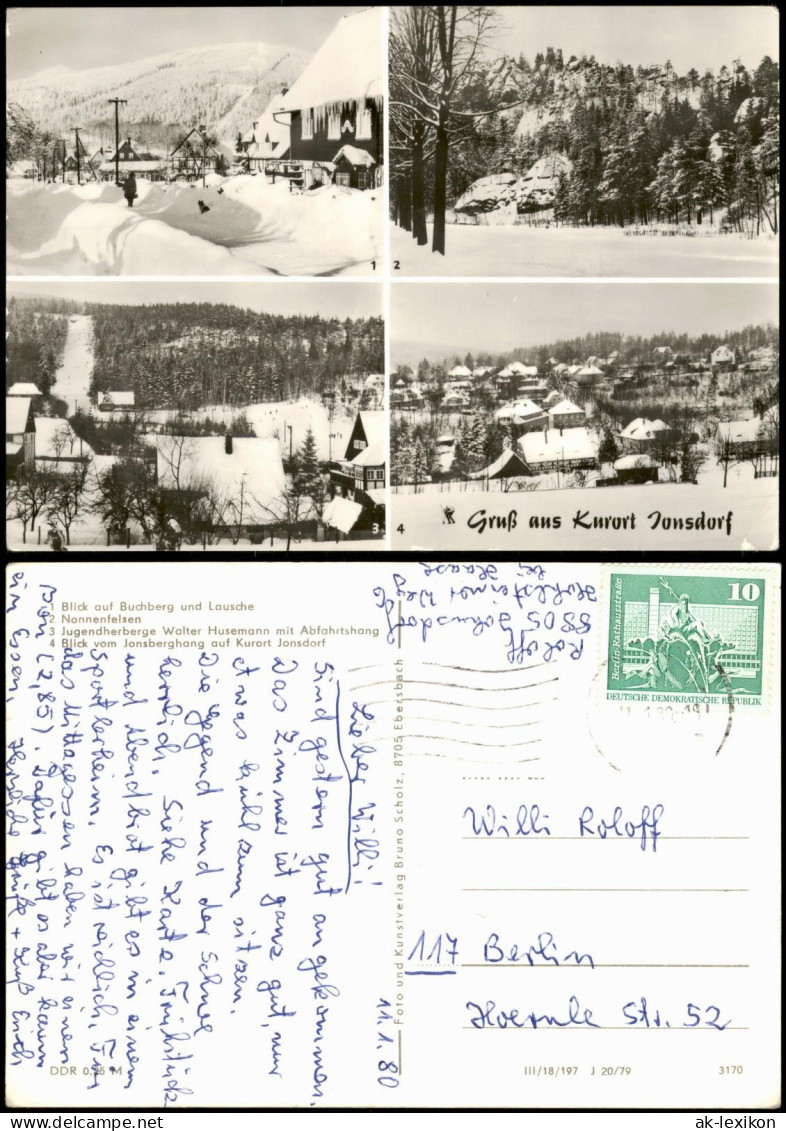 1
2
3
4
Gruß aus Kurort Jonsdorf
1 Blick auf Buchberg und Lausche
2 Nonnenfelsen
3 Jugendherberge Walter Husemann mit Abfahrtshang
4 Blick vom Jonsberghang auf Kurort Jonsdorf
Roloff
8805 Johnsdorf
Weg
bei Haase
Berlin-Rathausstraße
10
DEUTSCHE DEMOKRATISCHE REPUBLIK
11.1.80
Lieber Willi!
Sind gestern gut angekommen.
Das Zimmer ist ganz gut, nur
etwas kühl zum sitzen.
Die Gegend und der Schnee
herrlich. Siehe Karte. Frühstück
und Abendbrot gibt es in einem
Sportlerheim. Es ist reichlich. Für
das Mittagessen haben wir einen
Bon (2,85). Dafür gibt es aber kaum
ein Essen. Herzliche Grüße + Kuß Euch
Foto und Kunstverlag Bruno Scholz, 8705 Ebersbach
Willi Roloff
117 Berlin
Hoernle Str. 52
DDR 0,25 M
III/18/197 J 20/79
3170
www.delcampe.net
ak-lexikon